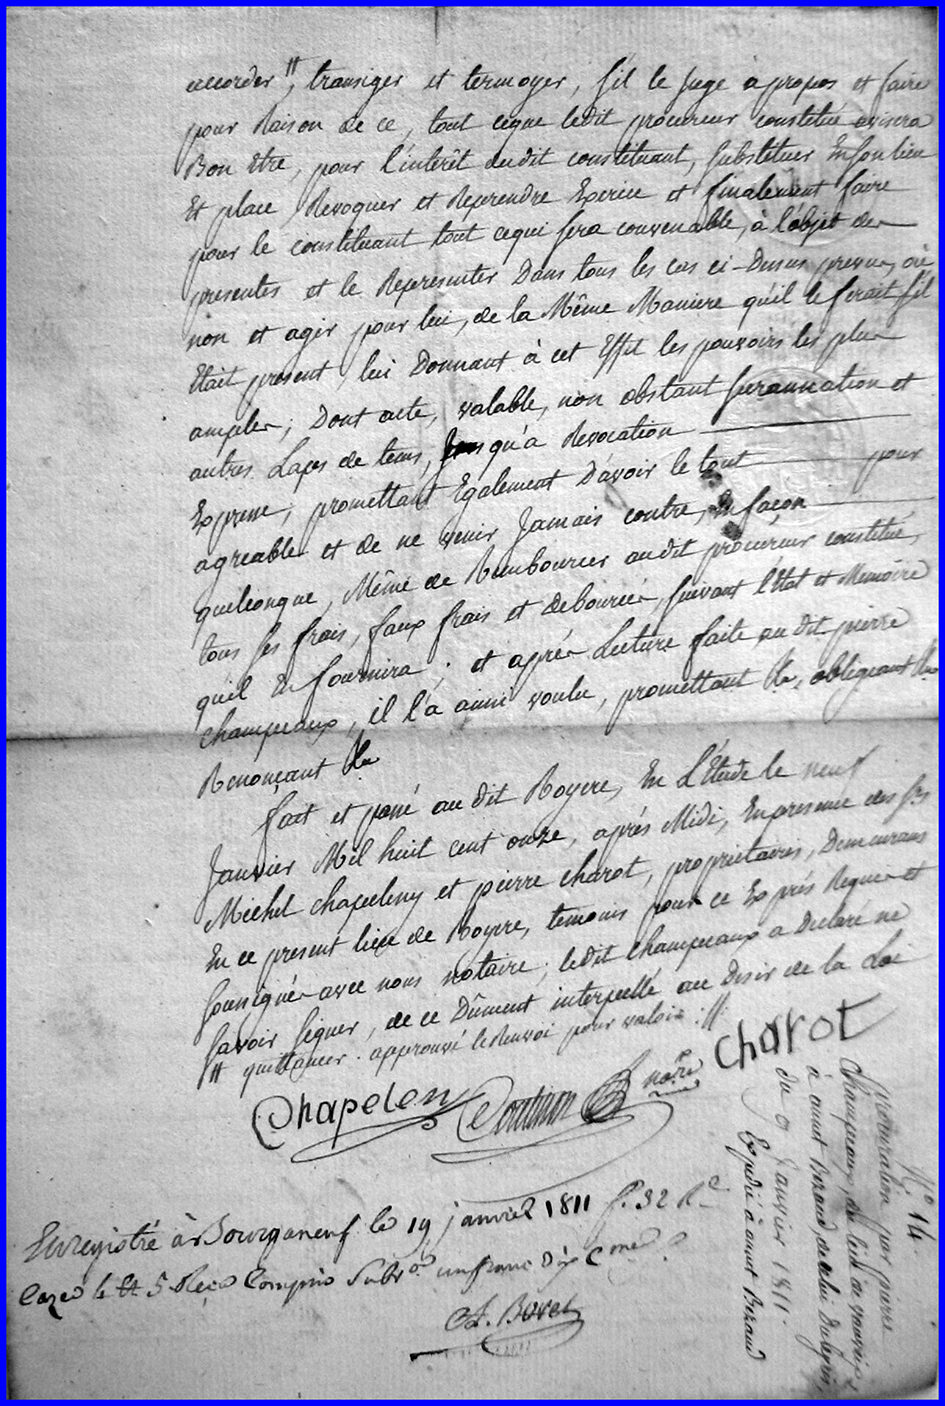 accorder #, transiger et termoyer, s'il le juge à propos et faire
pour Raison de ce, tout ceque ledit procureur constitué avisera
Bon Etre, pour l'interêt dudit constituant, substituer En son lieu
Et place, Revoquer et Reprendre Exercice et finalement faire
pour le constituant tout cequi sera convenable, à l'objet des
presentes et le Representer Dans tous les cas ci-Dessus prevus, où
non et agir pour lui, de la Même Maniere qu'il le ferait s'il
Etait present, lui Donnant à cet Effet les pouvoirs les plus
amples, Dont acte, valable, non obstant surannation et
autres Laps de tems, Jusqu'a Revocation
Expresse, promettant Egalement D'avoir le tout pour
agreable et de ne venir Jamais contre, En façon
quelconque, Même de Rembourcer audit procureur constitué,
tous ses frais, faux frais et debourcés, suivant l'Etat et Memoire
quil En fournira ; et après Lecture faite au dit pierre
champeaux, il l'a ainsi voulu, promettant &a, obligeant &a
Renonçant &a
fait et passé au dit Royere, En L'Etude le neuf
Janvier Mil huit cent onze, après Midi, En presence des srs
Michel chapeleny et pierre charot, proprietaires, Demeurans
En ce present lieu de Royere, temoins pour ce Exprès Requis et
soussignés avec nous notaire, ledit champeaux a Declaré ne
savoir signer, de ce Dûment interpellé au Desir de la Loi
# quittancer. approuvé le Renvoi pour valoir :#
charot
Chapeleny Coutisson nore
Enregistré à Bourganeuf le 19 janvier 1811 f. 32 Ro
Case le et 5 Reçu Compris Subvon un franc dix Cmes
A. Borel
No 14
procuration par pierre
champeaux du lieu de
à annet Bezaud de celui
du 9 Janvier 1811.
Expédié à annet Bezaud